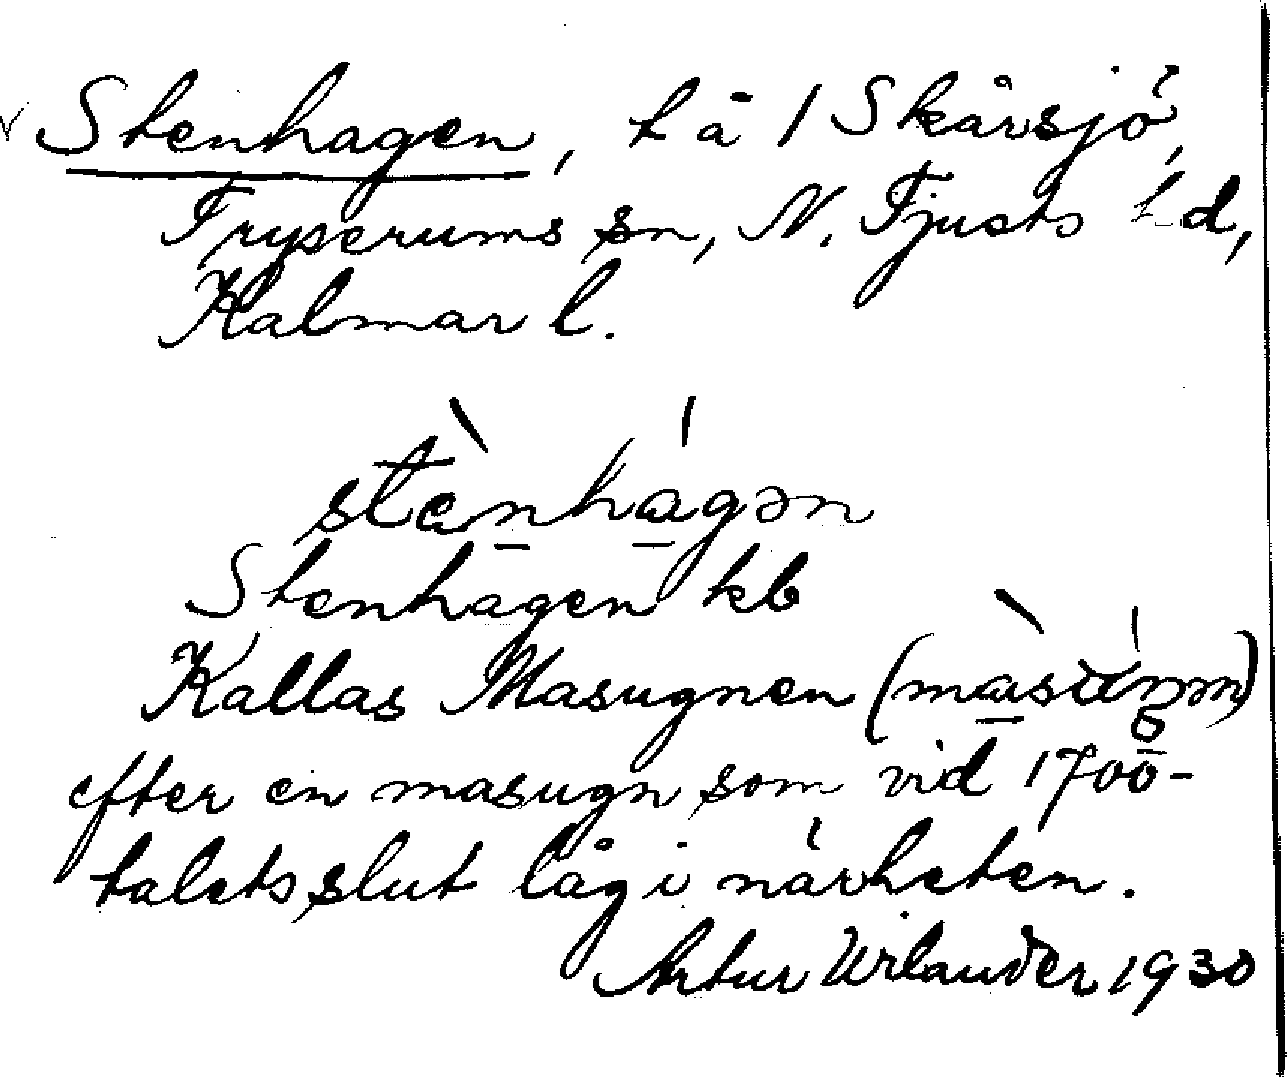 Stenhagen, t å 1 Skärsjö,
Tryserums sn, N. Tjusts hd,
Kalmar l.
stènhágən
Stenhagen kb
Kallas Masugnen
efter en masugn som vid 1700-
talets slut låg i närheten.
Artur Wilander 1930